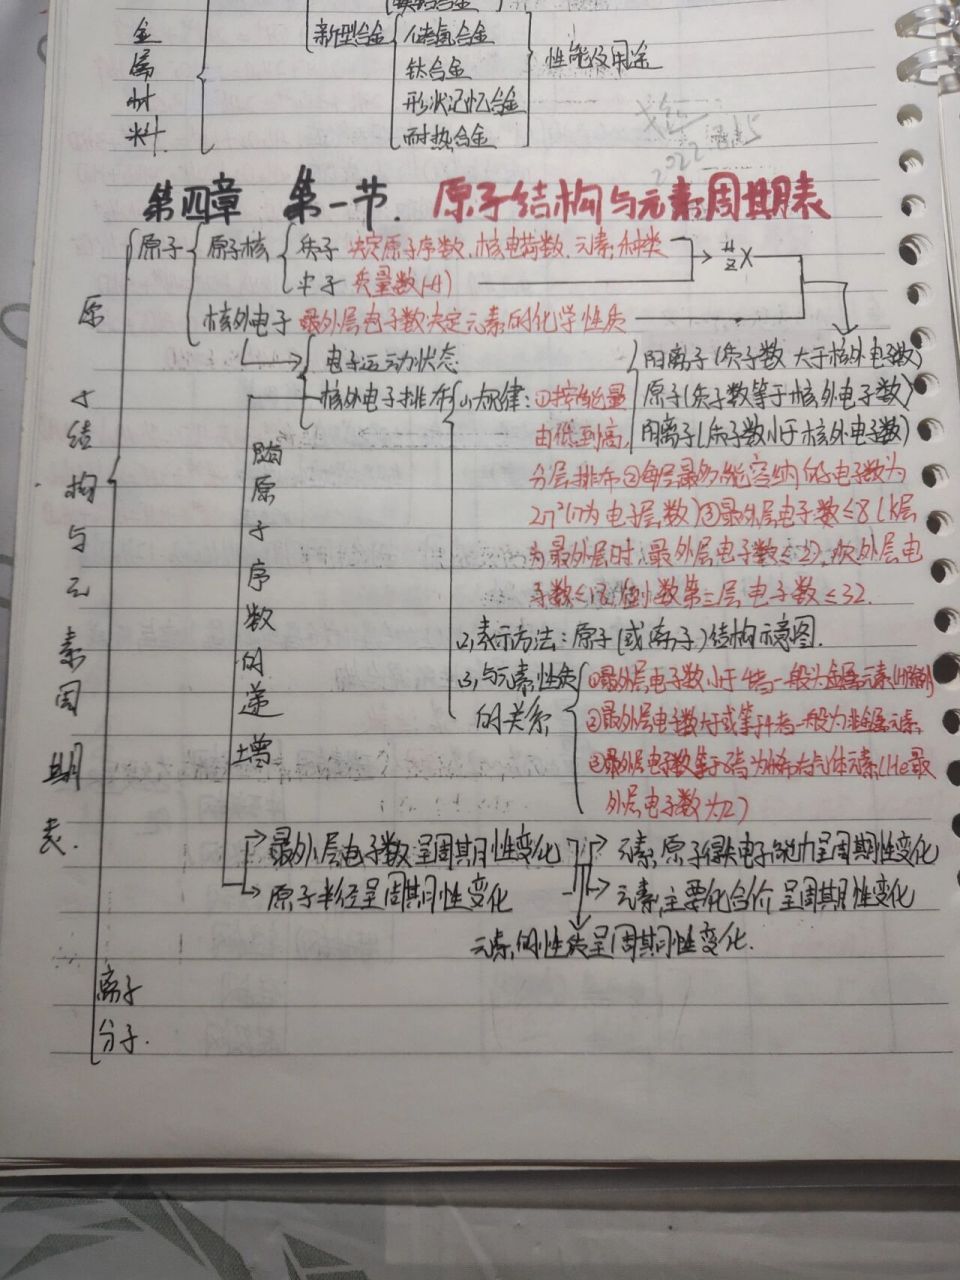 新型合金
储氢合金
钛合金
形状记忆合金
耐热合金
性能及用途
金属材料
2022
第四章 第一节. 原子结构与元素周期表
原子结构与元素周期表.
原子
原子核
质子 决定原子序数、核电荷数、元素种类
中子 质量数(A)
A Z X
核外电子 最外层电子数决定元素的化学性质
电子运动状态
阳离子(质子数大于核外电子数)
原子(质子数等于核外电子数)
阴离子(质子数小于核外电子数)
核外电子排布
(1)规律: ①按能量
由低到高,
分层排布②每层最多能容纳的电子数为
2n²(n为电子层数)③最外层电子数≤8(K层
为最外层时,最外层电子数≤2),次外层电
子数≤18,倒数第三层电子数≤32.
(2)表示方法:原子(或离子)结构示意图.
(3)与元素性质
的关系
①最外层电子数小于4者一般为金属元素(H除外)
②最外层电子数大于或等于4者一般为非金属元素
③最外层电子数等于8者为稀有气体元素(He最
外层电子数为2)
随原子序数的递增
最外层电子数呈周期性变化
原子半径呈周期性变化
元素原子得失电子能力呈周期性变化
元素主要化合价呈周期性变化
元素的性质呈周期性变化.
离子
分子.